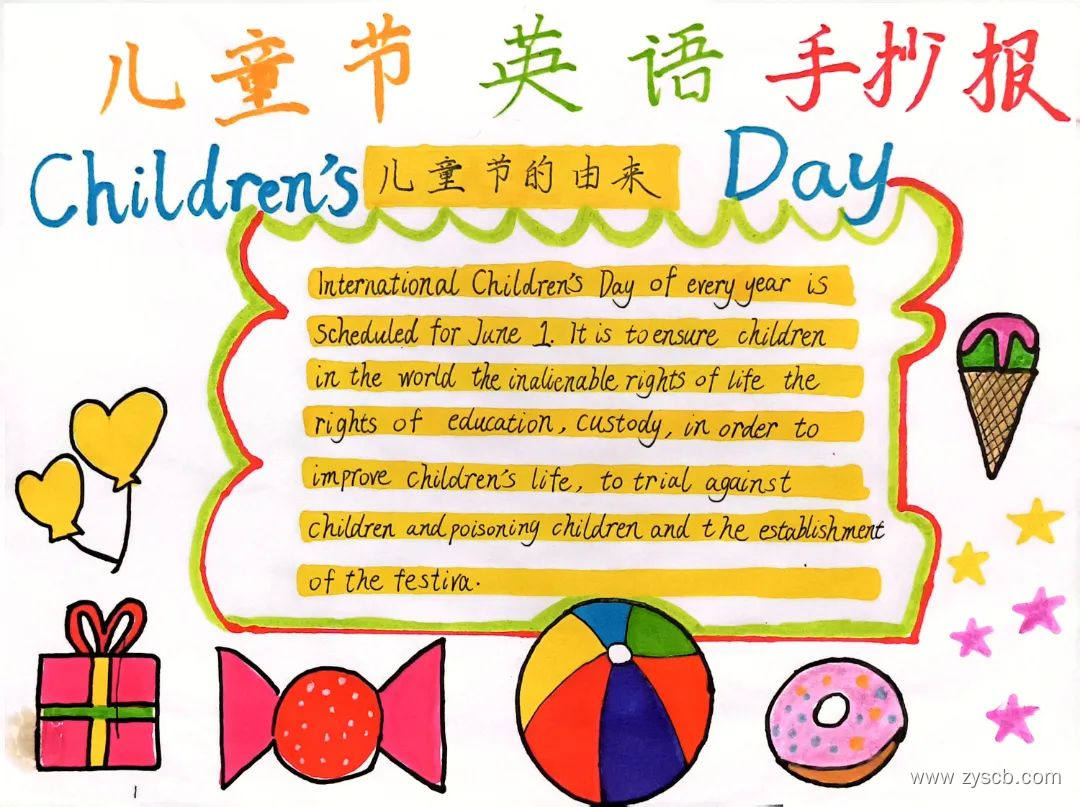 儿童节 英语 手抄报
Children's Day
儿童节的由来
International Children's Day of every year is
Scheduled for June 1. It is to ensure children
in the world the inalienable rights of life the
rights of education, custody, in order to
improve children's life, to trial against
children and poisoning children and the establishment
of the festiva.
www.zyscb.com